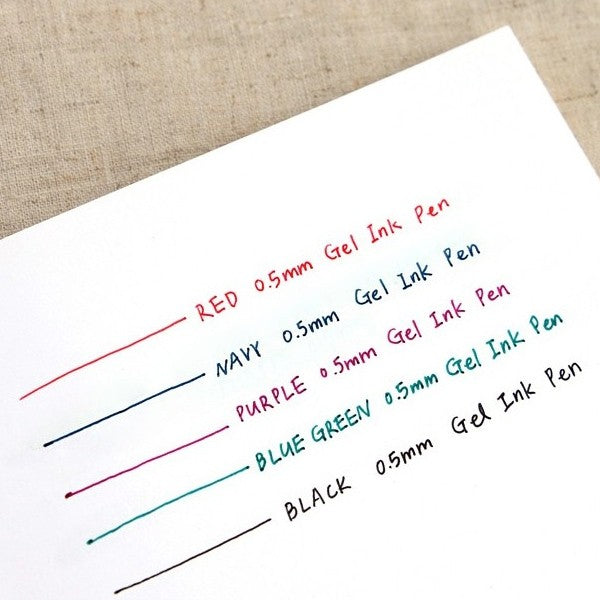 RED 0.5mm Gel Ink Pen
NAVY 0.5mm Gel Ink Pen
PURPLE 0.5mm Gel Ink Pen
BLUE GREEN 0.5mm Gel Ink Pen
BLACK 0.5mm Gel Ink Pen